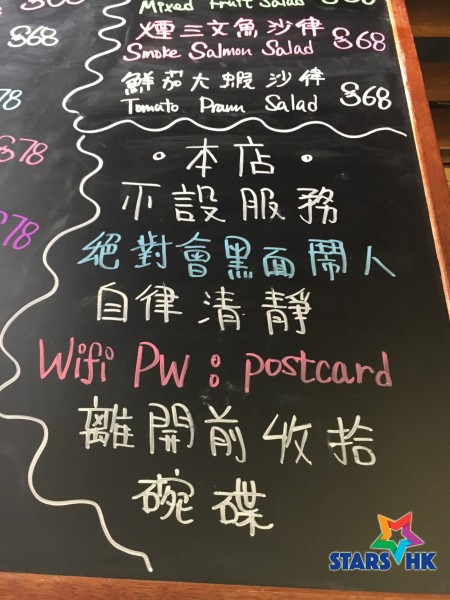 Mixed Fruit Salad
$68
煙三文魚沙律 $68
Smoke Salmon Salad
鮮茄大蝦沙律 $68
Tomato Prawn Salad
78
$78
$78
•本店•
不設服務
絕對會黑面鬧人
自律清靜
Wifi PW : postcard
離開前收拾
碗碟
STARS HK